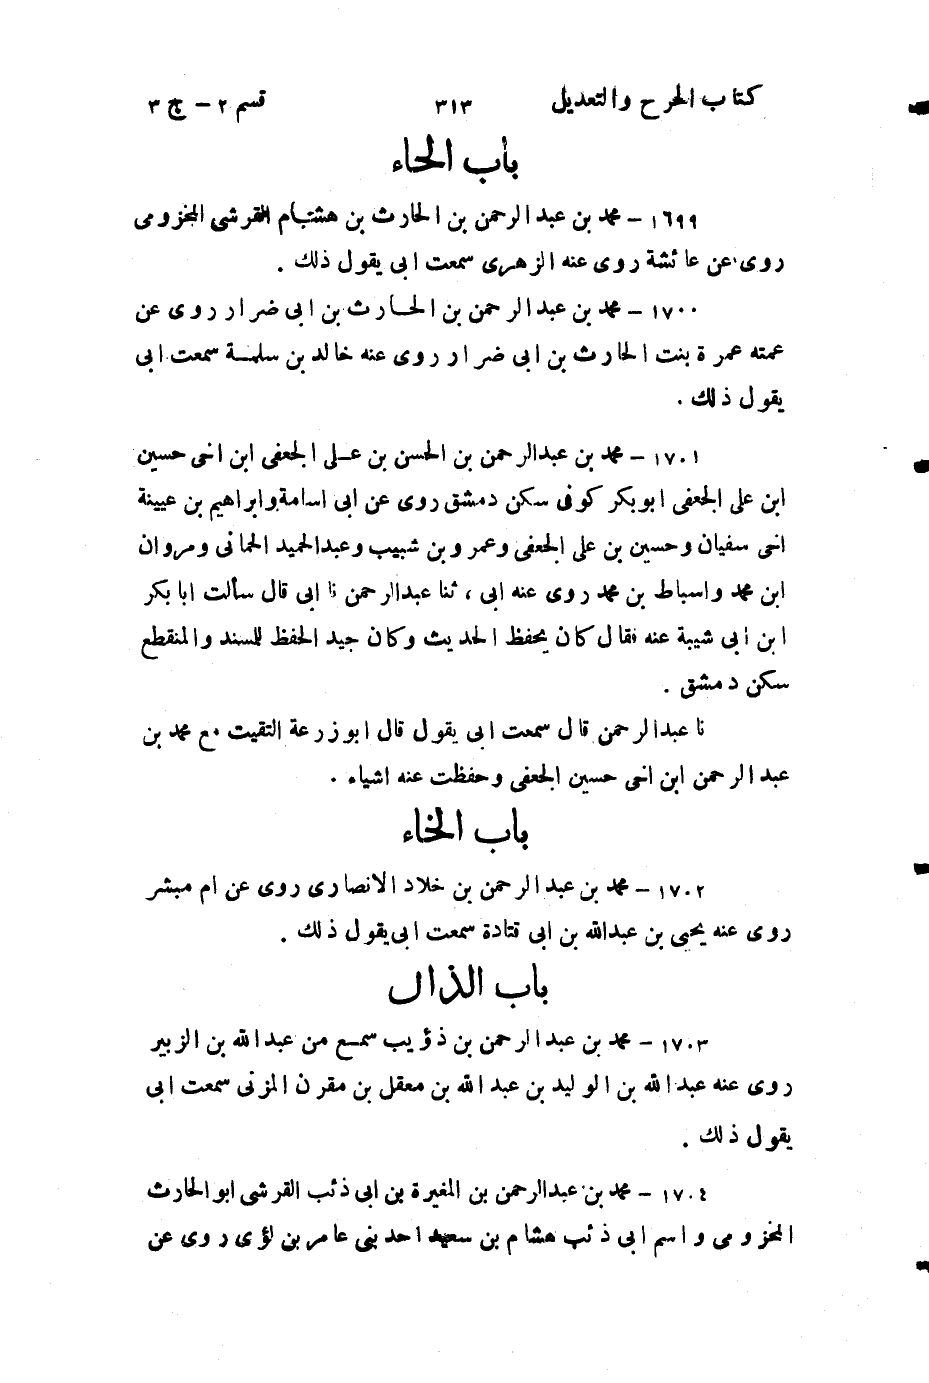 كتاب الجرح والتعديل ٣١٣ قسم ٢ – ج ٣
باب الحاء
١٦٩٩ – محمد بن عبد الرحمن بن الحارث بن هشام القرشى المخزومى
روى عن عائشة روى عنه الزهرى سمعت ابى يقول ذلك .
١٧٠٠ – محمد بن عبد الرحمن بن الحارث بن ابى ضرار روى عن
عمته عمرة بنت الحارث بن ابى ضرار روى عنه خالد بن سلمة سمعت ابى
يقول ذلك .
١٧٠١ – محمد بن عبدالرحمن بن الحسن بن على الجعفى ابن اخى حسين
ابن على الجعفى ابو بكر كوفى سكن دمشق روى عن ابى اسامة وابراهيم بن عيينة
اخى سفيان وحسين بن على الجعفى وعمرو بن شبيب وعبدالحميد الحمانى ومروان
ابن محمد واسباط بن محمد روى عنه ابى ، ثنا عبدالرحمن نا ابى قال سألت ابا بكر
ابن ابى شيبة عنه فقال كان يحفظ الحديث وكان جيد الحفظ للسند والمنقطع
سكن دمشق .
نا عبدالرحمن قال سمعت ابى يقول قال ابوزرعة التقيت مع محمد بن
عبد الرحمن ابن اخى حسين الجعفى وحفظت عنه اشياء .
باب الخاء
١٧٠٢ – محمد بن عبد الرحمن بن خلاد الانصارى روى عن ام مبشر
روى عنه يحيى بن عبدالله بن ابى قتادة سمعت ابى يقول ذلك .
باب الذال
١٧٠٣ – محمد بن عبد الرحمن بن ذؤيب سمع من عبدالله بن الزبير
روى عنه عبدالله بن الوليد بن عبدالله بن معقل بن مقرن المزنى سمعت ابى
يقول ذلك .
١٧٠٤ – محمد بن عبدالرحمن بن المغيرة بن ابى ذئب القرشى ابو الحارث
المخزومى واسم ابى ذئب هشام بن سعيد احد بنى عامر بن لؤى روى عن